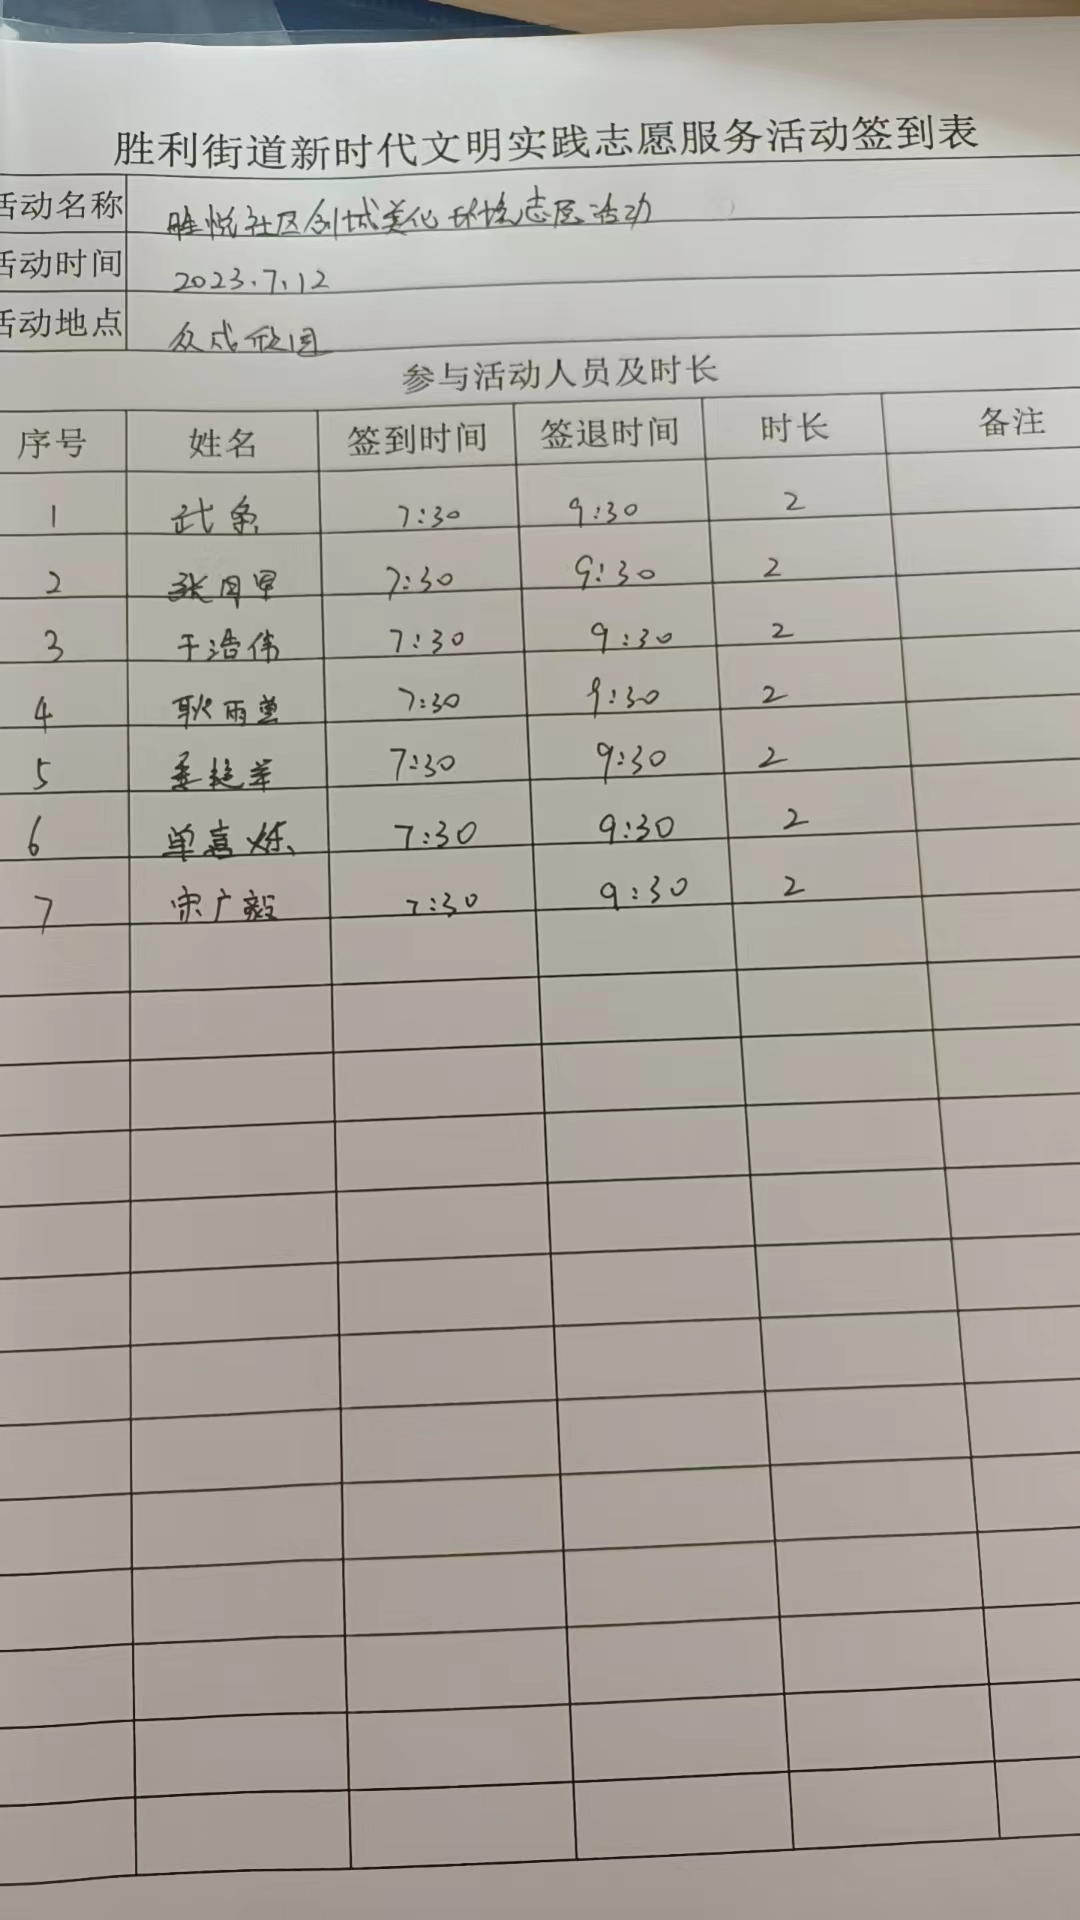 胜利街道新时代文明实践志愿服务活动签到表
活动名称 胜悦社区创城美化环境志愿活动
活动时间 2023.7.12
活动地点 众成欣园
参与活动人员及时长
序号 姓名 签到时间 签退时间 时长 备注
1 武 7:30 9:30 2
2 张 7:30 9:30 2
3 于浩伟 7:30 9:30 2
4 耿雨 7:30 9:30 2
5 7:30 9:30 2
6 单喜烁 7:30 9:30 2
7 宋广毅 7:30 9:30 2